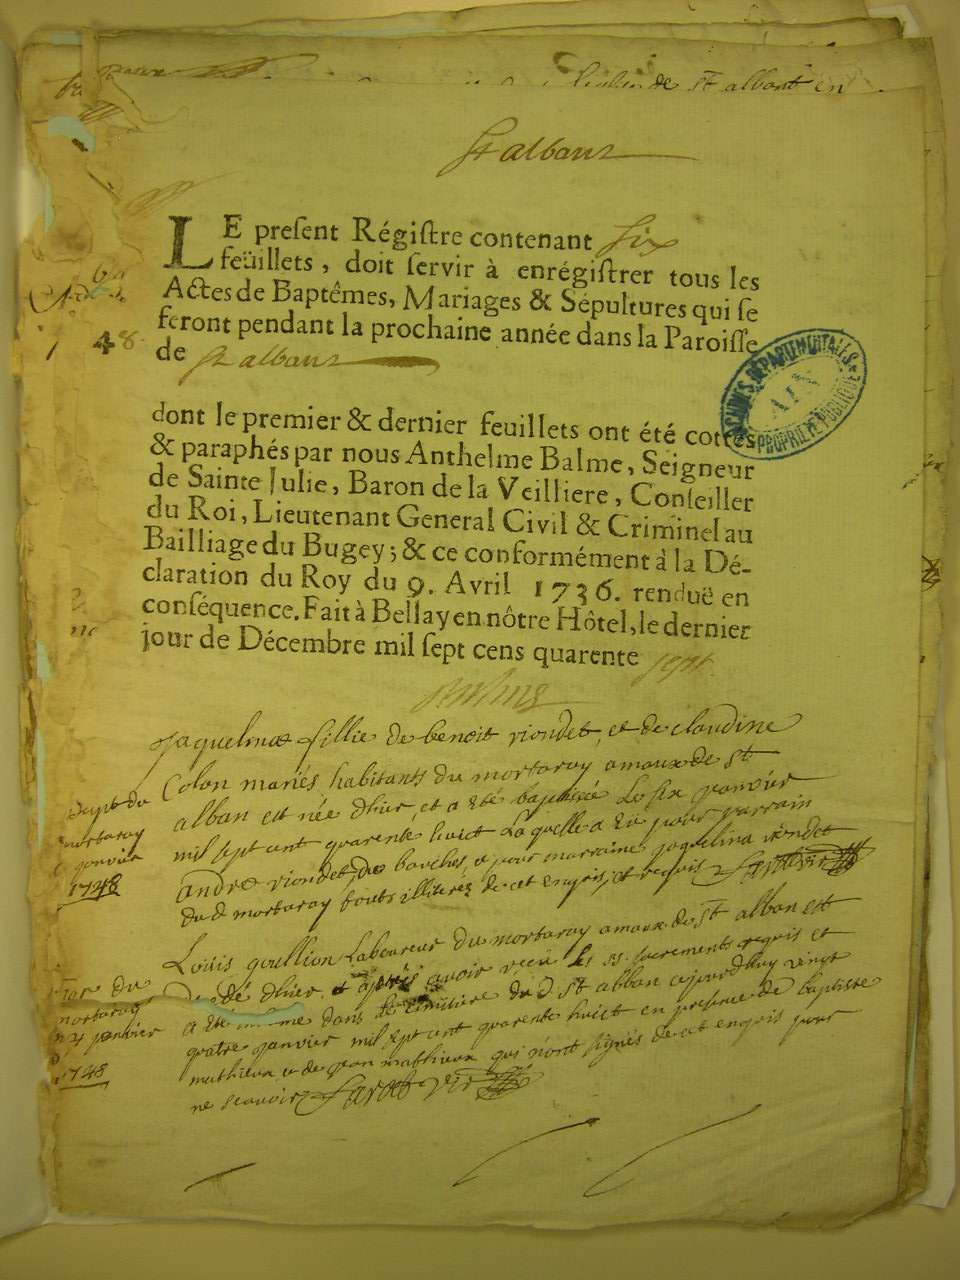 de St albant en
St albans
LE present Régistre contenant six
feüillets, doit servir à enrégistrer tous les
Actes de Baptêmes, Mariages & Sépultures qui se
feront pendant la prochaine année dans la Paroisse
de St albans
48.
ARCHIVES DÉPARTEMENTALES
AIN
PROPRIÉTÉ PUBLIQUE
dont le premier & dernier feuillets ont été cottés
& paraphés par nous Anthelme Balme, Seigneur
de Sainte Julie, Baron de la Veilliere, Conseiller
du Roi, Lieutenant General Civil & Criminel au
Bailliage du Bugey; & ce conformément à la Dé-
claration du Roy du 9. Avril 1736. renduë en
conséquence. Fait à Bellay en nôtre Hôtel, le dernier
jour de Décembre mil sept cens quarente sept.
Balme
Jaquelinae fillie de benoit riondet, et de claudine
Colon mariés habitants du mortaray amaux de St
alban est née dhier, et a eté baptisée Le six janvier
mil sept cent quarente huict Laquelle a eü pour parrain
andre riondet, de bouches, et pour marraine jaquelina riondet
du d mortaray touts illiterés de cet enquis, et requis
bapt du
mortaray
janvier
1748
Loüis goullion Laboureur du mortaray amaux de St alban est
dhier, et aprés avoir reçu les ss. sacrements requis et
a eté dans Le cimitiere du d St alban aujourdhuy vingt
quatre janvier mil sept cent quarente huict en presence de baptiste
mathieux et de jean mathieux qui n'ont signés de cet enquis pour
ne scavoir
du
mortaray
24 janvier
1748